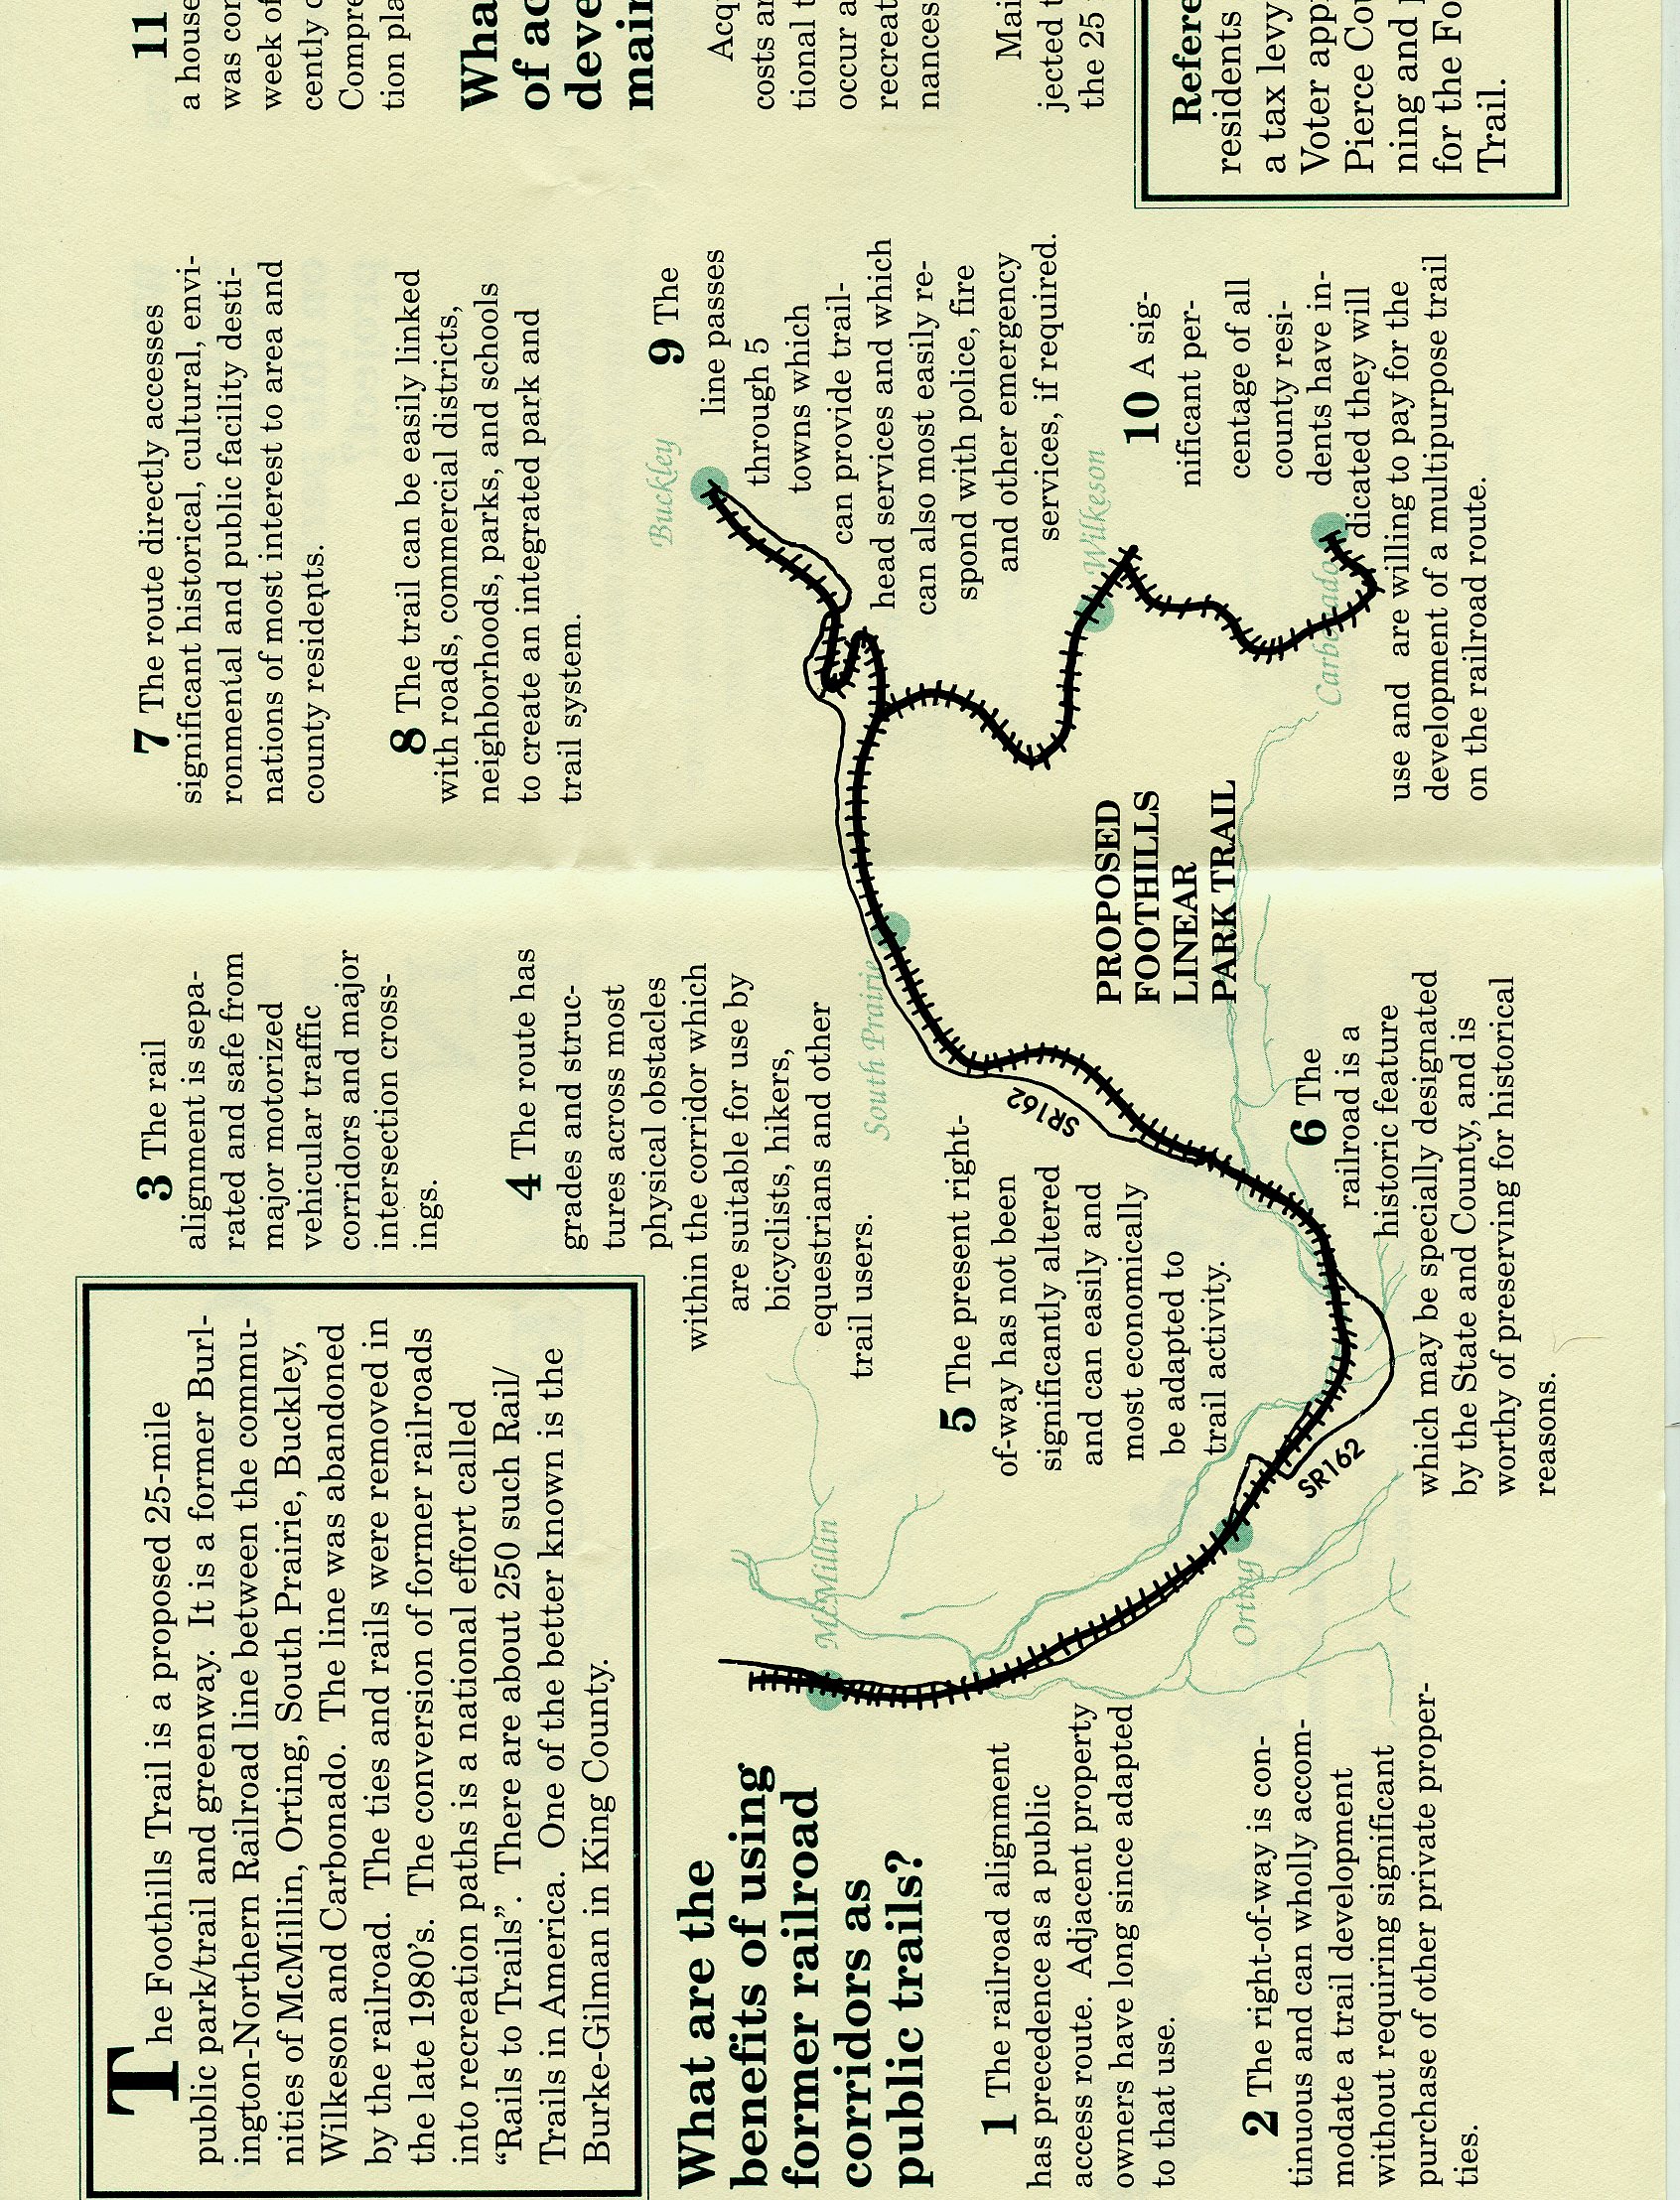 The Foothills Trail is a proposed 25-mile
public park/trail and greenway. It is a former Burl-
ington-Northern Railroad line between the commu-
nities of McMillin, Orting, South Prairie, Buckley,
Wilkeson and Carbonado. The line was abandoned
by the railroad. The ties and rails were removed in
the late 1980's. The conversion of former railroads
into recreation paths is a national effort called
“Rails to Trails”. There are about 250 such Rail/
Trails in America. One of the better known is the
Burke-Gilman in King County.
What are the
benefits of using
former railroad
corridors as
public trails?
1 The railroad alignment
has precedence as a public
access route. Adjacent property
owners have long since adapted
to that use.
2 The right-of-way is con-
tinuous and can wholly accom-
modate a trail development
without requiring significant
purchase of other private proper-
ties.
3 The rail
alignment is sepa-
rated and safe from
major motorized
vehicular traffic
corridors and major
intersection cross-
ings.
4 The route has
grades and struc-
tures across most
physical obstacles
within the corridor which
are suitable for use by
bicyclists, hikers,
equestrians and other
trail users.
5 The present right-
of-way has not been
significantly altered
and can easily and
most economically
be adapted to
trail activity.
6 The
railroad is a
historic feature
which may be specially designated
by the State and County, and is
worthy of preserving for historical
reasons.
McMillin
Orting
SR162
SR162
South Prairie
PROPOSED
FOOTHILLS
LINEAR
PARK TRAIL
Buckley
Wilkeson
Carbonado
7 The route directly accesses
significant historical, cultural, envi-
ronmental and public facility desti-
nations of most interest to area and
county residents.
8 The trail can be easily linked
with roads, commercial districts,
neighborhoods, parks, and schools
to create an integrated park and
trail system.
9 The
line passes
through 5
towns which
can provide trail-
head services and which
can also most easily re-
spond with police, fire
and other emergency
services, if required.
10 A sig-
nificant per-
centage of all
county resi-
dents have in-
dicated they will
use and are willing to pay for the
development of a multipurpose trail
on the railroad route.
11
a house
was con
week of
cently c
Compre
tion pla
Wha
of ac
deve
main
Acq
costs an
tional t
occur a
recreat
nances
Mai
jected t
the 25
Refere
residents
a tax levy
Voter app
Pierce Cou
ning and
for the Fo
Trail.